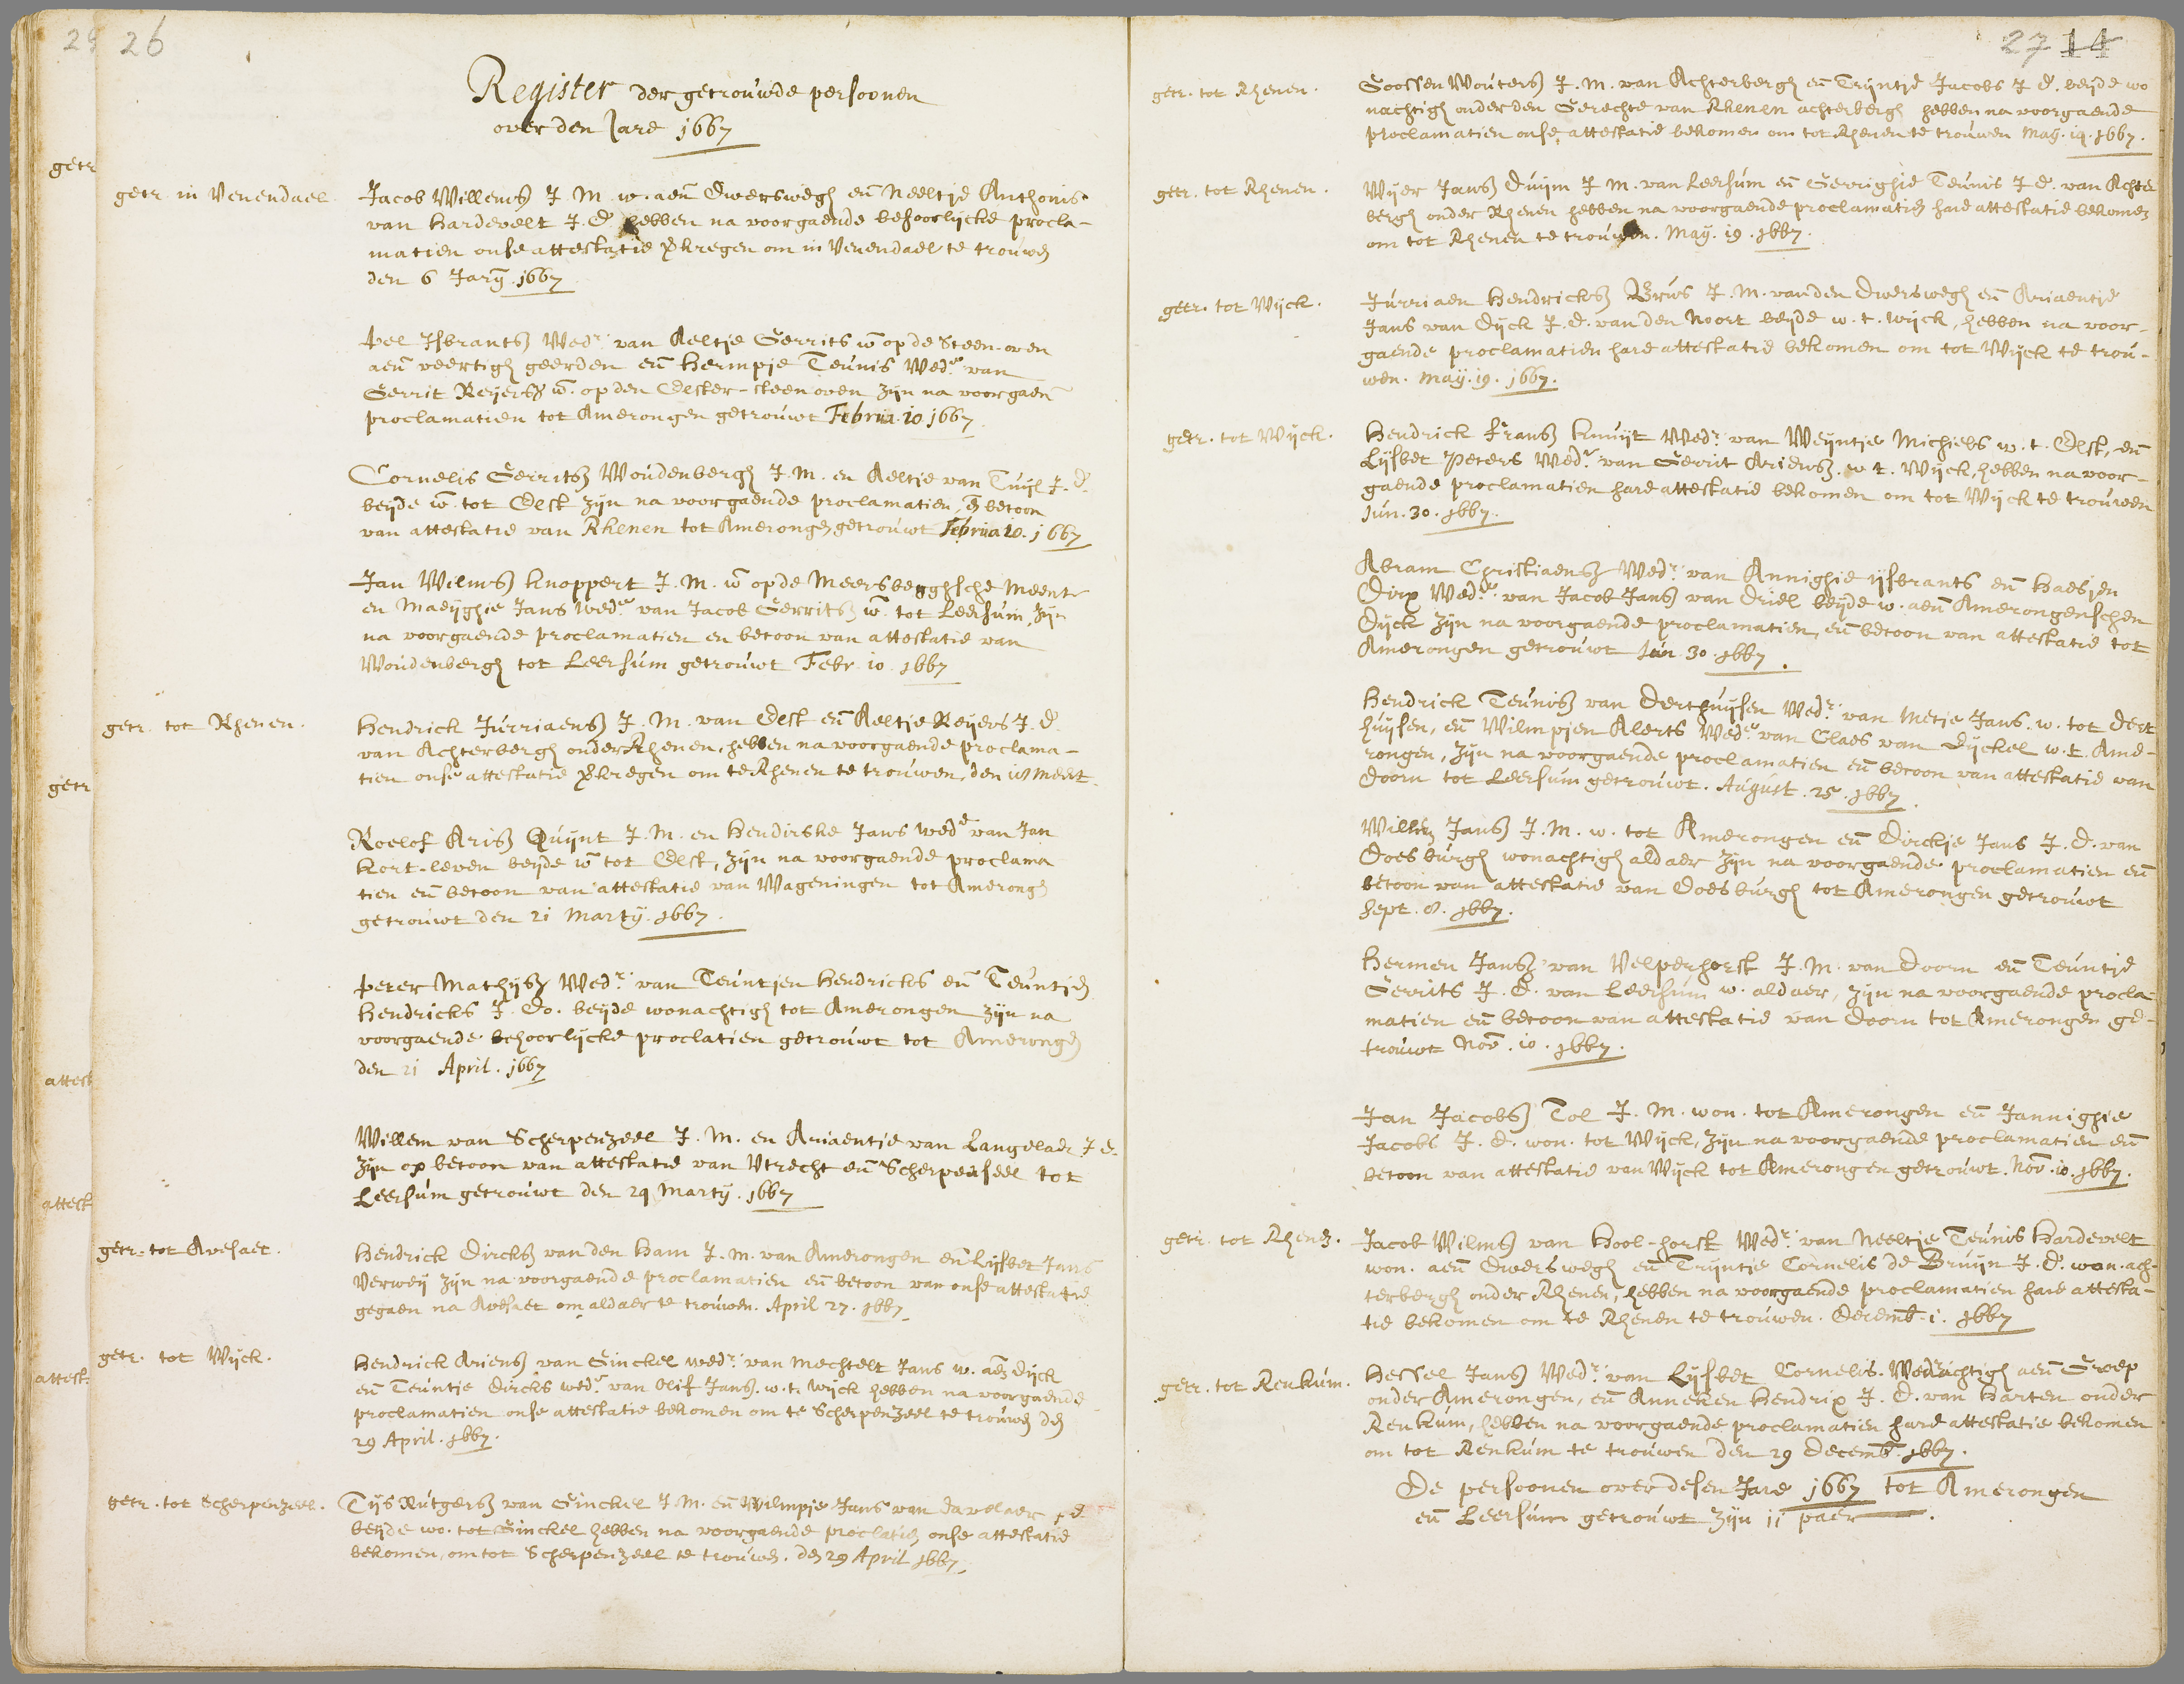 26
Register der getrouwde persoonen
over den Jare 1667
getr. in Venendael
Jacob Willemsz J. M. w. aen Dwerswegh en Neeltje Anthonis
van Hardevelt J. D. hebben na voorgaende behoorlijcke procla-
matien onse attestatie verkregen om in Venendael te trouwen
den 6 Jary. 1667
Pel IJsbrantsz Wedr. van Aeltje Gerrits w. op de Steen-oven
aen veertigh geerden en Hermpje Teunis Wede. van
Gerrit Reijersz w. op den Elster-steenoven zijn na voorgaen
proclamatien tot Amerongen getrouwt Februa. 10 1667
Cornelis Gerritsz Woudenbergh J. M. en Aeltje van Tuijl J. d.
beijde w. tot Elst zijn na voorgaende proclamatien, en betoon
van attestatie van Rhenen tot Amerongen getrouwt Februa 10. 1667
Jan Wilmsz Knoppert J. M. w. op de Meersberghsche Meent
en Maeijghie Jans Wede. van Jacob Gerritsz w. tot Leersum, zijn
na voorgaende proclamatien en betoon van attestatie van
Woudenbergh tot Leersum getrouwt Febr. 10. 1667
getr. tot Rhenen.
Hendrick Jurriaensz J. M. van Elst en Aeltje Reijers J. d.
van Achterbergh onder Rhenen, hebben na voorgaende proclama-
tien onse attestatie verkregen om te Rhenen te trouwen, den 18 Meert.
Roelof Arisz Quijnt J. M. en Hendirske Jans wede van Jan
Kort-leven beijde w. tot Elst, zijn na voorgaende proclama
tien en betoon van attestatie van Wageningen tot Amerongen
getrouwt den 21 Martij. 1667.
Peter Mathijsz Wedr. van Teuntjen Hendricks en Teuntjen
Hendricks J. Do. beijde wonachtigh tot Amerongen zijn na
voorgaende behoorlijcke proclatien getrouwt tot Amerongen
den 21 April. 1667
Willem van Scherpenzeel J. M. en Ariaentje van Langelaer J. d.
zijn op betoon van attestatie van Utrecht en Scherpenseel tot
Leersum getrouwt den 24 Martij. 1667
getr. tot Avesaet.
Hendrick Dircksz van den Ham J. M. van Amerongen en Lijsbet Jans
Verweij zijn na voorgaende proclamatien en betoon van onse attestatie
gegaen na Avesaet om aldaer te trouwen. April 27. 1667.
getr. tot Wijck.
Hendrick Ariensz van Ginckel wedr. van Mechtelt Jans w. aen dijck
en Teuntje Dircks wede. van Olif Jansz. w. t. Wijck hebben na voorgaende
proclamatien onse attestatie bekomen om te Scherpenzeel te trouwen den
29 April. 1667.
getr. tot Scherpenzeel.
Tijs Rutgersz van Ginckel J. M. en Wilmpje Jans van Davelaer J d.
beijde wo. tot Ginckel hebben na voorgaende proclatien onse attestatie
bekomen, om tot Scherpenzeel te trouwen. den 29 April 1667.
27 14
getr. tot Rhenen.
Goossen Woutersz J. M. van Achterbergh en Trijntje Jacobs J d. beijde wo
nachtigh onder den Gerechte van Rhenen achterbergh hebben na voorgaende
proclamatien onse attestatie bekomen om tot Rhenen te trouwen Maij. 19. 1667.
getr. tot Rhenen.
Wijer Jansz Duijm J M. van Leersum en Gerrighie Teunis J d. van Achter
bergh onder Rhenen hebben na voorgaende proclamatien hare attestatie bekomen
om tot Rhenen te trouwen. Maij. 19. 1667.
getr. tot Wijck.
Jurriaen Hendricksz Brus J. M. vanden Dwerswegh en Ariaentje
Jans van Dijck J. d. van den Noort beijde w. t. wijck, hebben na voor-
gaende proclamatien hare attestatie bekomen om tot Wijck te trou-
wen. Maij. 19. 1667.
getr. tot Wijck.
Hendrick Fransz Knuijt Wedr. van Weijntje Michiels w. t. Elst, en
Lijsbet Peters Wede. van Gerrit Ariensz. w t. Wijck, hebben na voor-
gaende proclamatien hare attestatie bekomen om tot Wijck te trouwen
Jun. 30. 1667.
Abram Christiaensz Wedr. van Annighie ijsbrants en Haesjen
Dirx Wede. van Jacob Jansz van Driel beijde w. aen Amerongenschen
Dijck zijn na voorgaende proclamatien, en betoon van attestatie tot
Amerongen getrouwt Jun. 30. 1667.
Hendrick Teunisz van Derthuijsen Wedr. van Metje Jans. w. tot Dert
huijsen, en Wilmpjen Alerts Wede. van Claes van Dijckel w. t. Ame-
rongen, zijn na voorgaende proclamatien en betoon van attestatie van
Doorn tot Leersum getrouwt. August. 25. 1667.
Willem Jansz J. M. w. tot Amerongen en Dirckje Jans J. d. van
Doesburgh wonachtigh aldaer zijn na voorgaende proclamatien en
betoon van attestatie van Doesburgh tot Amerongen getrouwt
Sept. 8. 1667.
Hermen Jansz van Velperhorst J. M. van Doorn en Teuntje
Gerrits J. d. van Leersum w. aldaer, zijn na voorgaende procla
matien en betoon van attestatie van Doorn tot Amerongen ge-
trouwt Nov. 10. 1667.
Jan Jacobsz Tol J. M. won. tot Amerongen en Jannighie
Jacobs J. d. won. tot Wijck, zijn na voorgaende proclamatien en
betoon van attestatie van Wijck tot Amerongen getrouwt. Nov. 10. 1667.
getr. tot Rhenen.
Jacob Wilmsz van Hool-horst Wedr. van Neeltje Teunis Hardevelt
won. aen Dwerswegh en Trijntje Cornelis de Bruijn J. d. won. ach-
terbergh onder Rhenen, hebben na voorgaende proclamatien hare attesta-
tie bekomen om te Rhenen te trouwen. Decemb. 1. 1667
getr. tot Renkum.
Hessel Jansz Wedr. van Lijsbet Cornelis. Wonachtigh aen Groep
onder Amerongen, en Anneken Hendrix J. d. van Harten onder
Renkum, hebben na voorgaende proclamatien hare attestatie bekomen
om tot Renkum te trouwen den 29 Decemb. 1667.
De persoonen over desen Jare 1667 tot Amerongen
en Leersum getrouwt zijn 11 paer.